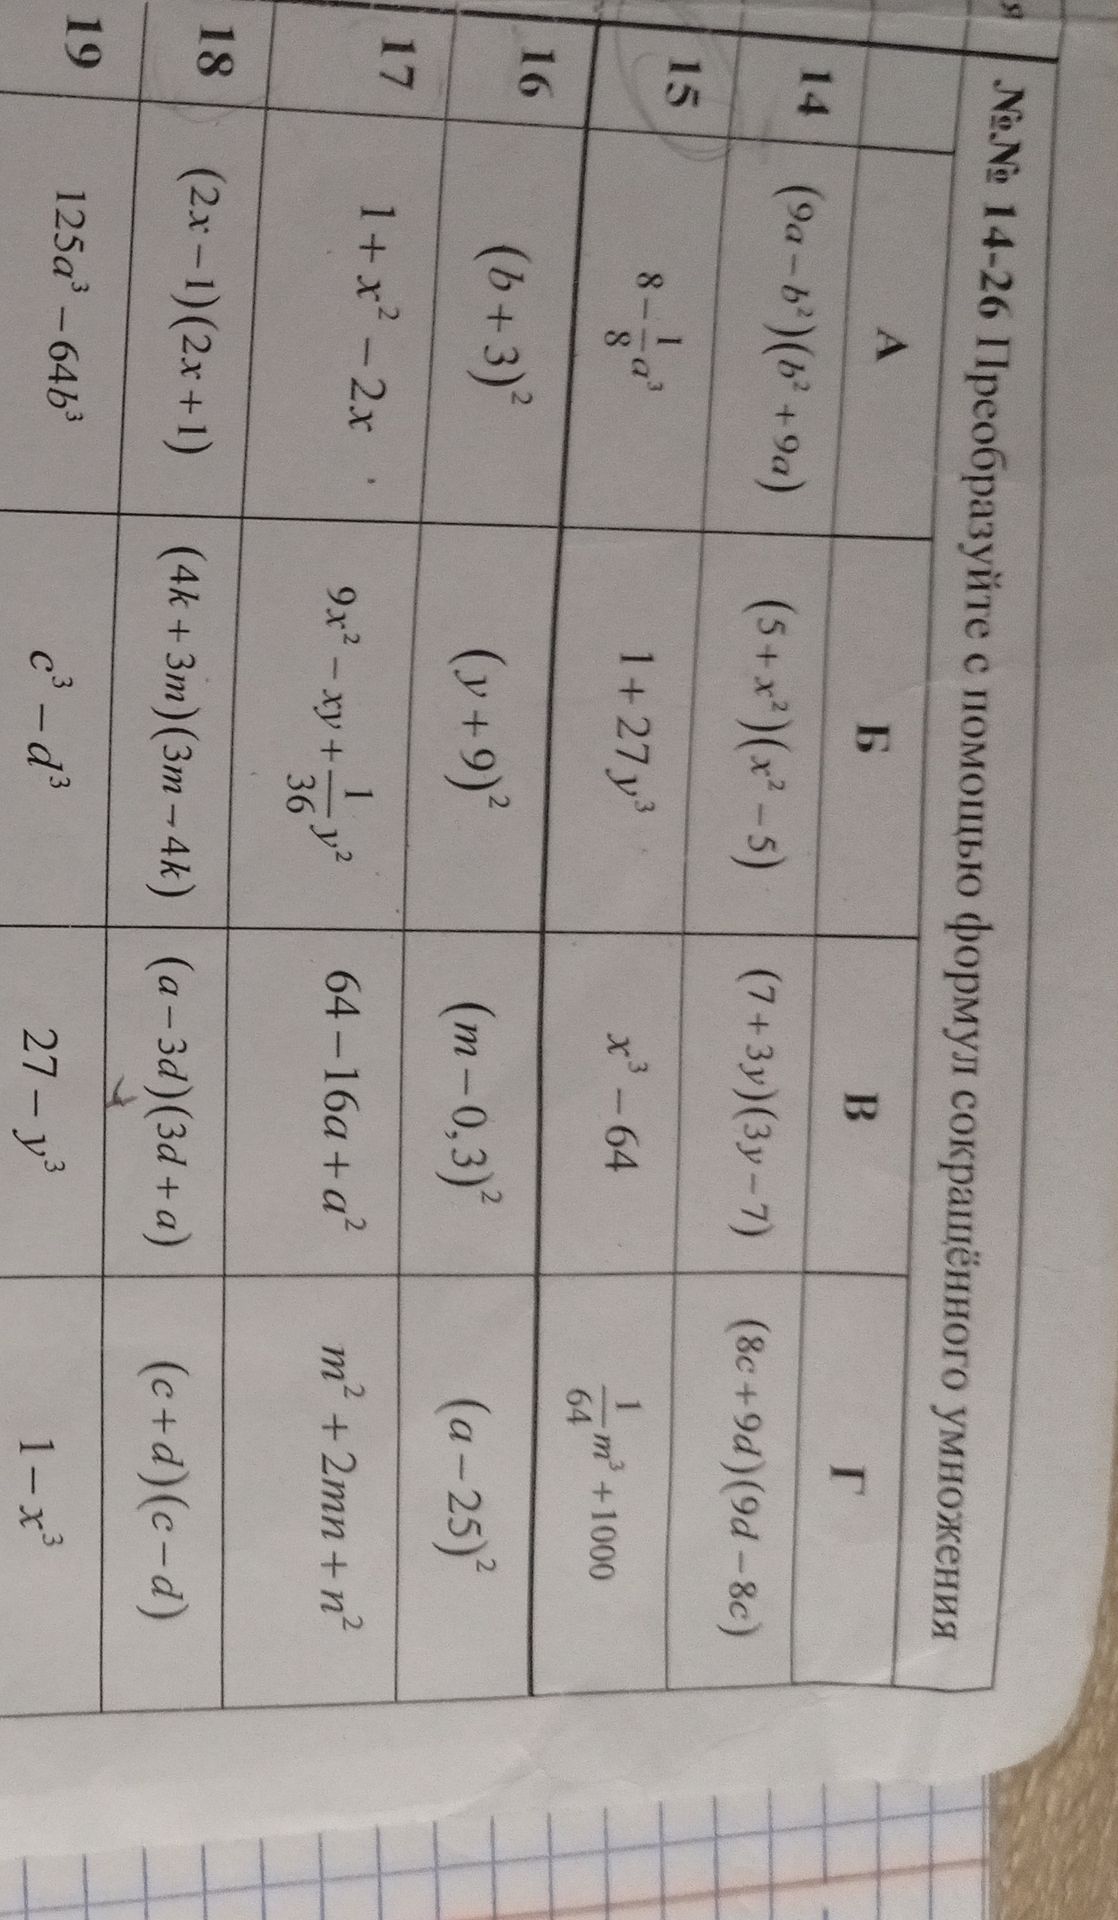 я
№№ 14-26 Преобразуйте с помощью формул сокращённого умножения
А Б В Г
14 (9a − b²)(b² + 9a) (5 + x²)(x² − 5) (7 + 3y)(3y − 7) (8c + 9d)(9d − 8c)
15 8 − 1/8 a³ 1 + 27y³ x³ − 64 1/64 m³ + 1000
16 (b + 3)² (y + 9)² (m − 0,3)² (a − 25)²
17 1 + x² − 2x 9x² − xy + 1/36 y² 64 − 16a + a² m² + 2mn + n²
18 (2x − 1)(2x + 1) (4k + 3m)(3m − 4k) (a − 3d)(3d + a) (c + d)(c − d)
19 125a³ − 64b³ c³ − d³ 27 − y³ 1 − x³